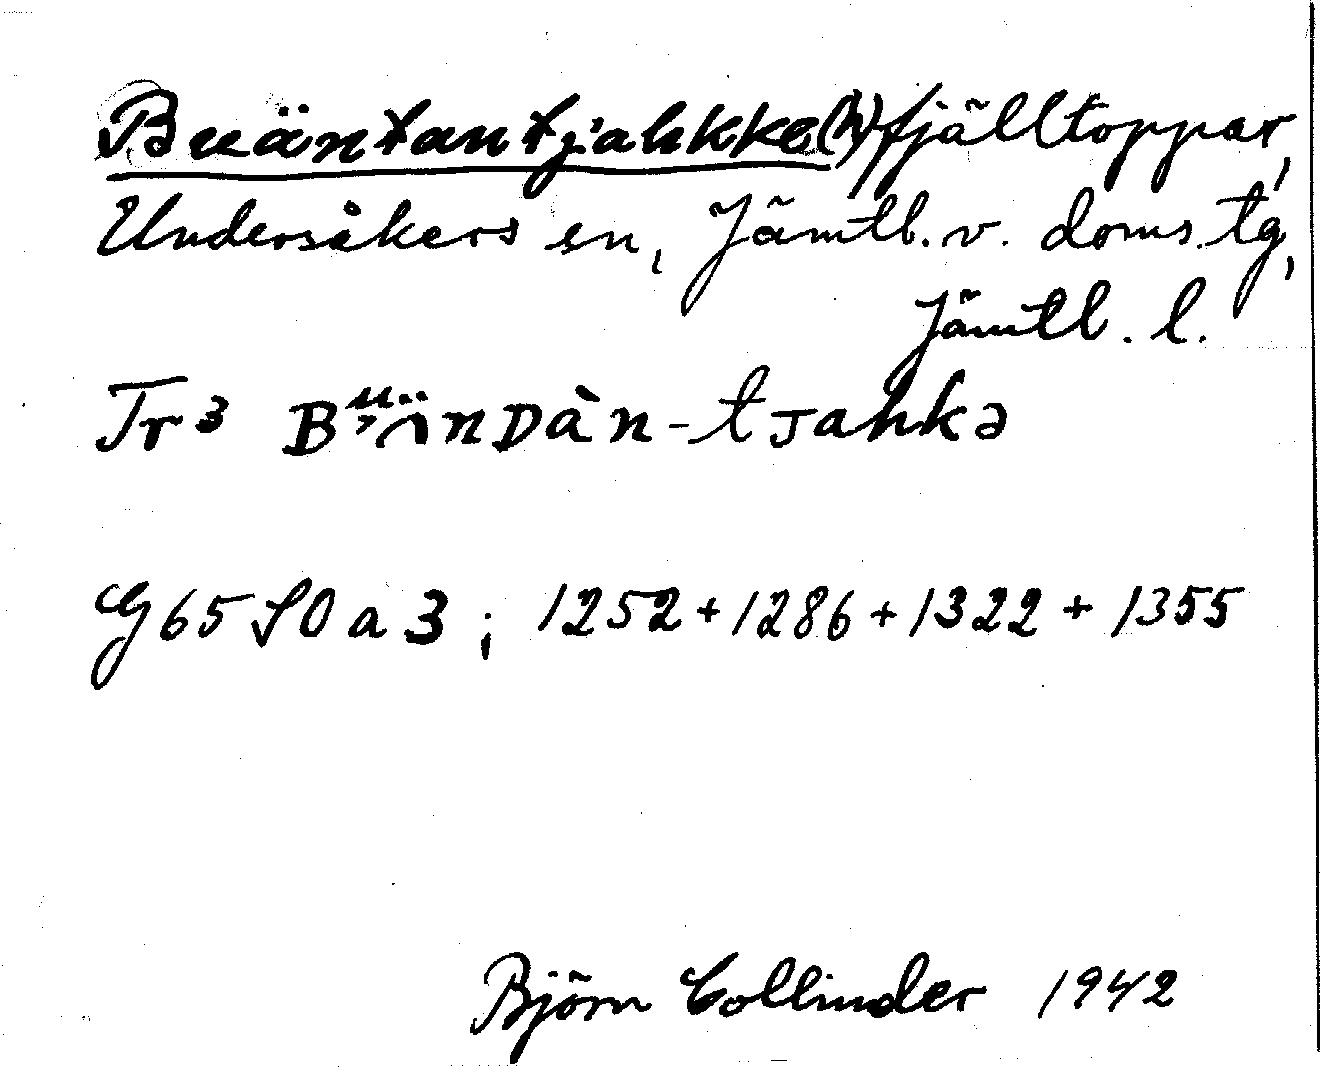 Buäntantjahkke(h) fjälltoppar,
Undersåkers sn, Jämtl. v. doms. tg,
Jämtl. l.
Tr 3 BᵘänDàn-tjahkə
G 65 SO a 3; 1252+1286+1322+1355
Björn Collinder 1942